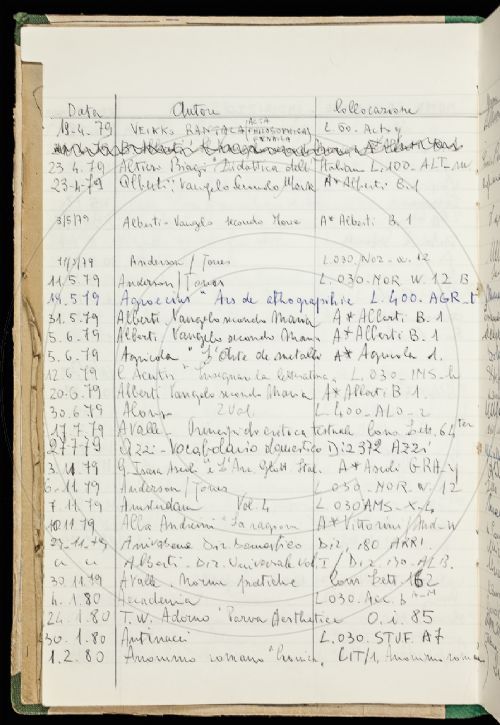 Data Autore Collocazione
19.4.79 VEIKKO RANTALA (ACTA PHILOSOPHICA FENNICA) L.00. Acta y
23 4.79 Altiero Biagi "Didattica dell' Italian L.100-ALT-m
23-4-79 Alberti: Vangelo secondo Maria A* Alberti B.1
3/5/79 Alberti - Vangelo secondo Maria A* Alberti B.1
Anderson / Jones L.030. NOR. w. 12
11.5.79 Anderson / Jones L.030-NOR W.12 B
18.5.79 Agroecius "Ars de orthographia L.400.AGR-t
31.5.79 Alberti Vangelo secondo Maria A* Alberti B.1
5.6.79 Alberti Vangelo secondo Maria A* Alberti B.1
5.6.79 Agricola "L'Arte de metalli A* Agricola 1.
12 6.79 "Insegnare la letteratura. L.030-IMS-h
20.6.79 Alberti Vangelo secondo Maria A* Alberti B 1.
30.6 79 Alonso 2 Vol L.400-ALO-2
17.7.79 Avalle Principi di critica testuale Cons. Lett. 64 ter
27 7 79 Azzi - Vocabolario domestico Diz 372 AZZI
3.11.79 G. Isaia Ascoli e L'Arc. Glott. Ital. A* Ascoli GRA-y
6-11 79 Anderson / Jones L 030-NOR. w. 12
7.11.79 Amsterdam Vol. 4 L 030 AMS-X-4
10 11 79 Alba Andreini "La ragione A* Vittorini And-w
23-11-79 Arrivabene Diz Domestico Diz. 180 ARRI
" " Alberti - Diz. Universale Vol. I / Diz. 130-ALB.
30.11.79 Avalle, Norme pratiche Cons Lett. 162
4.1.80 Accademia L.030. Acc. b A-M
24.1.80 T.W. Adorno "Parva Aesthetica O.i.85
30.1.80 Antinucci L.030-STUF. A7
1.2.80 Anonimo romano "Cronica. CIT/1. Anonimo romano